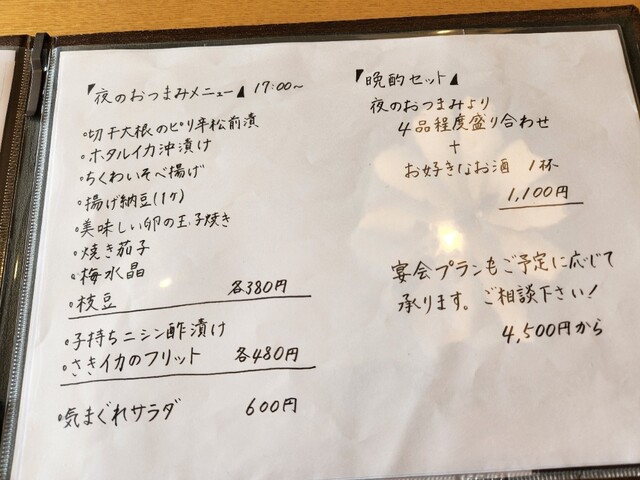 夜のおつまみメニュー 17:00~
・切干大根のピリ辛松前漬
・ホタルイカ沖漬け
・ちくわいそべ揚げ
・揚げ納豆(1ヶ)
・美味しい卵の玉子焼き
・焼き茄子
・梅水晶
・枝豆 各380円
・子持ちニシン酢漬け
・さきイカのフリット 各480円
・気まぐれサラダ 600円
晩酌セット
夜のおつまみより
4品程度盛り合わせ
+
お好きなお酒 1杯
1,100円
宴会プランもご予定に応じて
承ります。ご相談下さい!
4,500円から